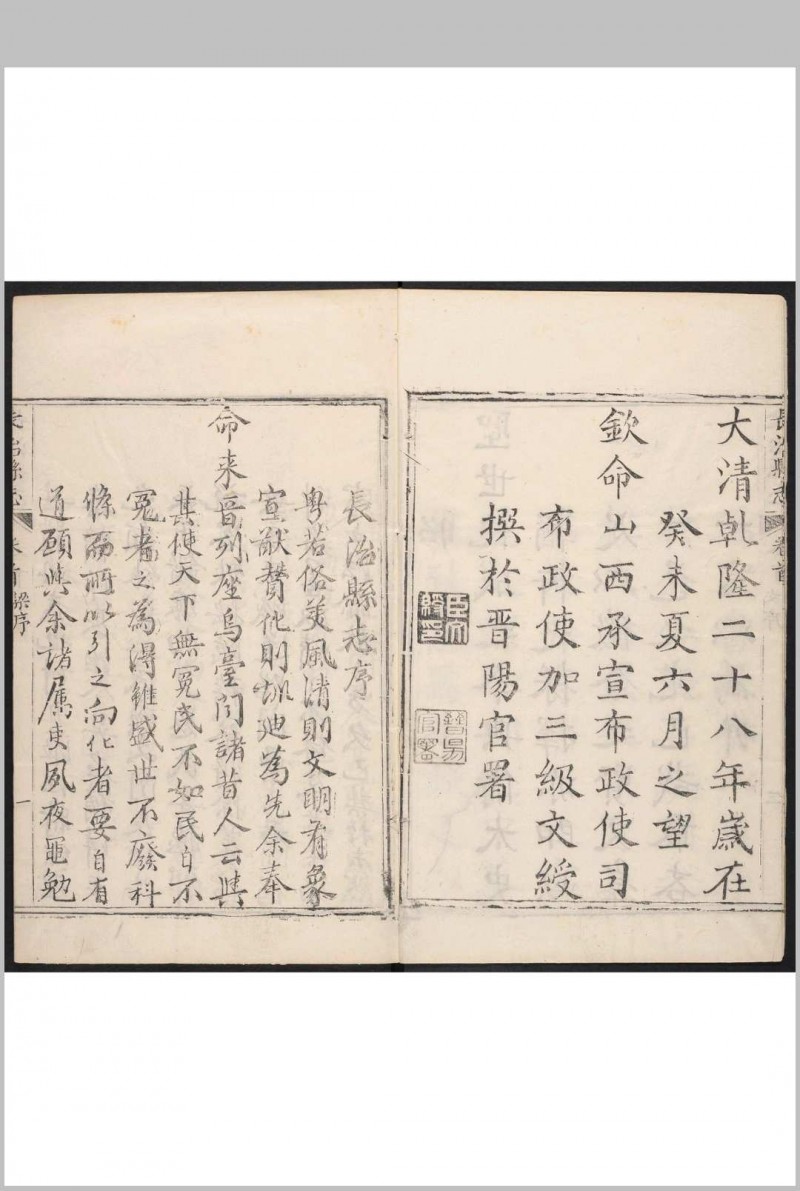 長治縣志
卷首
大清乾隆二十八年歲在
癸未夏六月之望
欽命山西承宣布政使司
布政使加三級文綬
撰於晋陽官署
臣文綬印
晉陽官署
長治縣志序
粵若俗美風清則文明有象
宣猷賛化則勸廸為先余奉
命来晋列座烏臺聞諸昔人云與
其使天下無冤民不如民自不
冤者之為得雖盛世不廢科
條而所以引之向化者要自有
道顧與余諸属吏夙夜黽勉
長治縣志
卷首
梁序
一